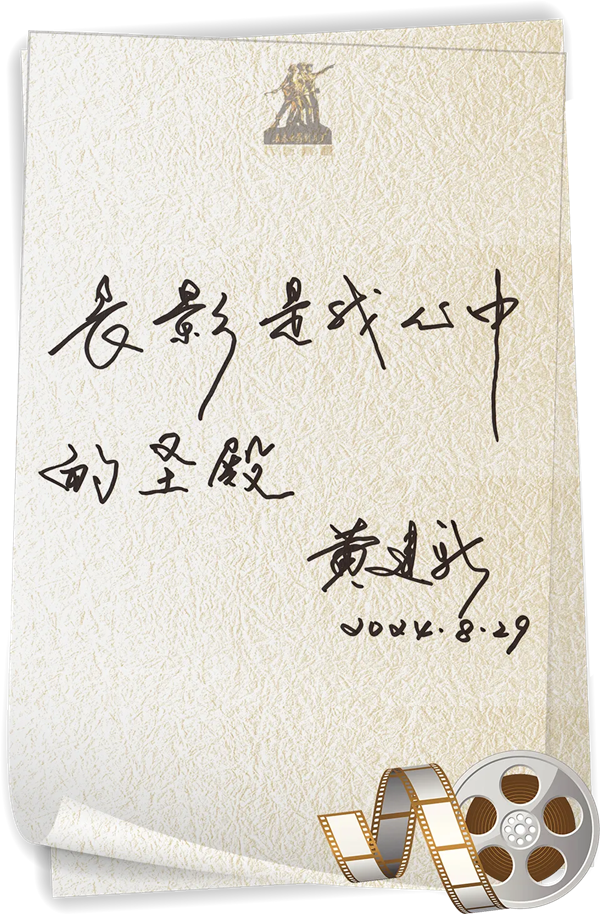 长影是我心中
的圣殿
黄建新
2024.8.29